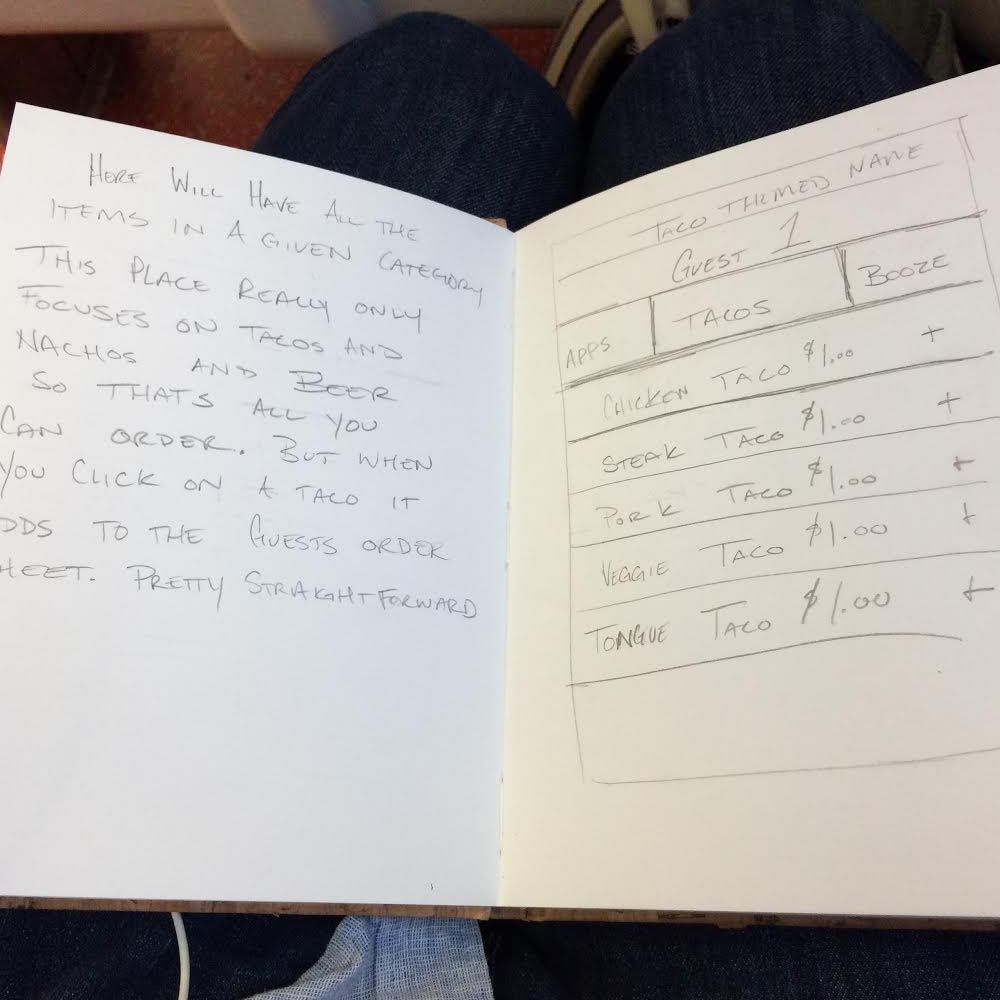 HERE WILL HAVE ALL THE
ITEMS IN A GIVEN CATEGORY
THIS PLACE REALLY ONLY
FOCUSES ON TACOS AND
NACHOS AND BEER
SO THAT'S ALL YOU
CAN ORDER. BUT WHEN
YOU CLICK ON A TACO IT
DDS TO THE GUESTS ORDER
HEET. PRETTY STRAIGHTFORWARD
TACO THEMED NAME
GUEST 1
APPS TACOS BOOZE
CHICKEN TACO $1.00 +
STEAK TACO $1.00 +
PORK TACO $1.00 +
VEGGIE TACO $1.00 +
TONGUE TACO $1.00 +